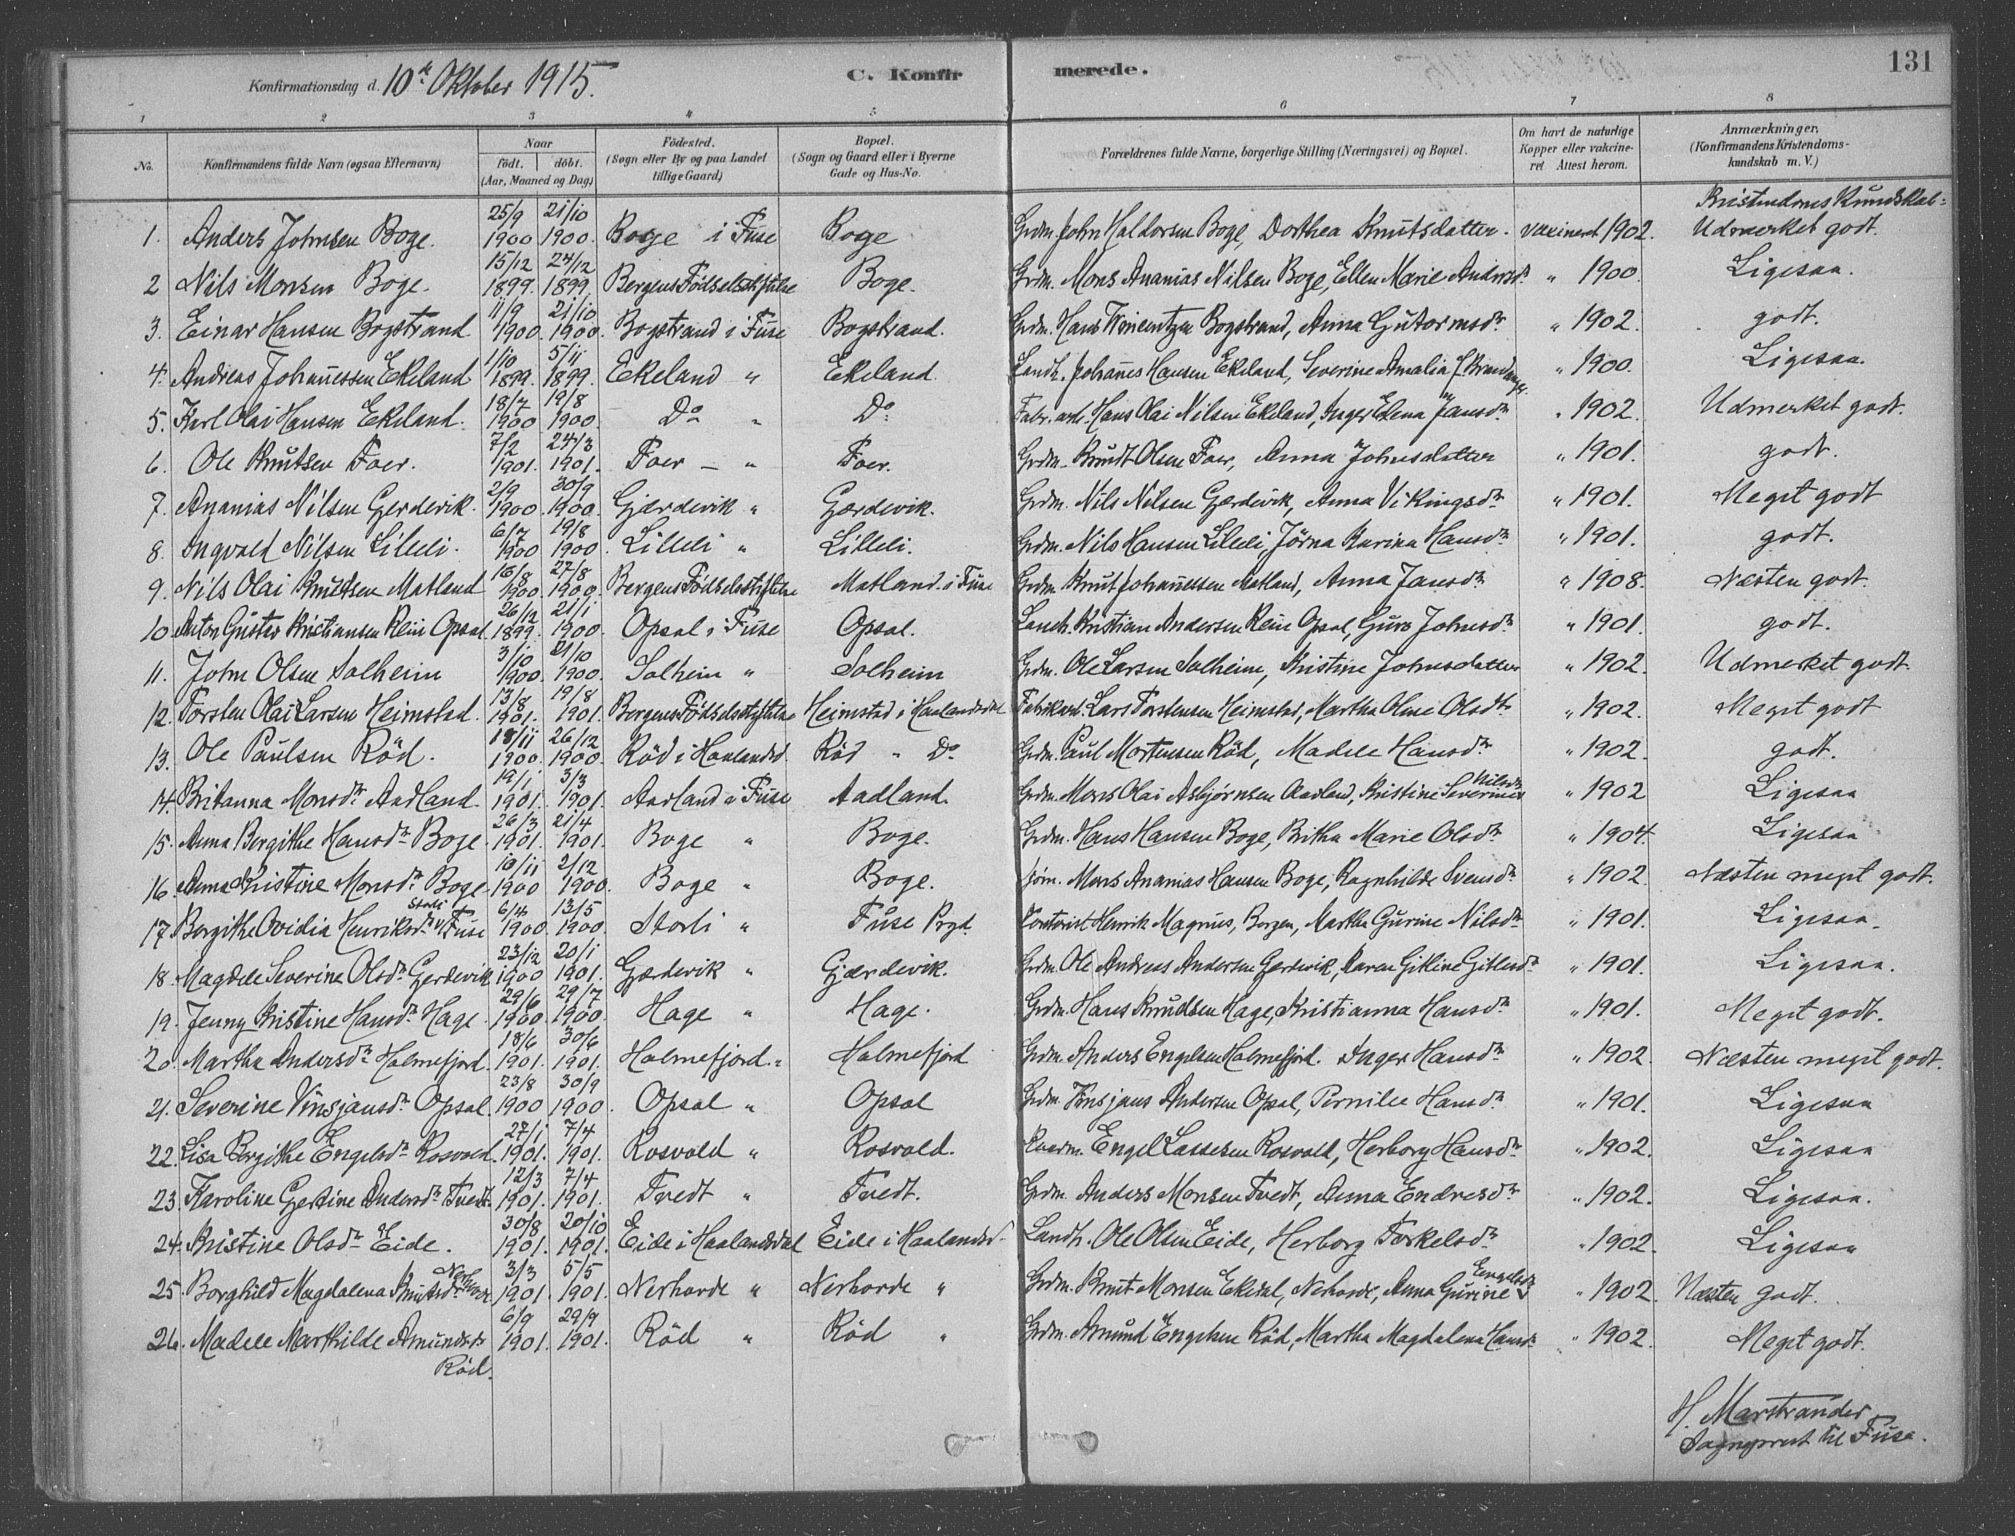 131
Konfirmationsdag d. 10de Oktober 1915. C. Konfirmerede.
1 2 3 4 5 6 7 8
No. Konfirmandens fulde Navn (ogsaa Efternavn) Naar födt. döbt. (Aar, Maaned og Dag) Födested. (Sogn eller By og paa Landet tillige Gaard) Bopæl. (Sogn og Gaard eller i Byerne Gade og Hus-No. Forældrenes fulde Navne, borgerlige Stilling (Næringsvei) og Bopæl. Om havt de naturlige Kopper eller vakcineret Attest herom. Anmærkninger. (Konfirmandens Kristendomskundskab m. V.)
Kristendoms Kundskab:
1. Anders Johnsen Boge. 25/9 1900 21/10 1900. Boge i Fuse Boge Grdm. John Haldorsen Boge, Dorthea Knutsdatter. vaxineret 1902. Udmerket godt.
2 Nils Monsen Boge. 15/12 1899. 24/12 1899. Bergens Födselsstiftelse Boge. Grdm. Mons Ananias Nilsen Boge, Ellen Marie Andersdr " 1900. Ligesaa.
3. Einar Hansen Bogstrand 11/9 1900. 21/10 1900. Bogstrand i Fuse Bogstrand. Grdm. Hans Bogstrand, Anna Gutormsdr " 1902. godt.
4. Andreas Johannessen Ekeland 1/10 1899. 5/11 1899. Ekeland " Ekeland. Landh. Johannes Hansen Ekeland, Severine Amalia " 1900. Ligesaa.
5. Karl Olai Hansen Ekeland. 18/7 1900 19/8 1900. Do " Do Fabr. arb. Hans Olai Nilsen Ekeland, Inger Elena Jansdr " 1902. Udmerket godt.
6. Ole Knutsen Foer. 7/2 1901. 24/3 1901. Foer - " Foer. Grdm. Knudt Olsen Foer, Anna Johnsdatter " 1901. godt.
7. Ananias Nilsen Gerdevik. 2/9 1900. 30/9 1900. Gjærdevik " Gærdevik. Grdm. Nils Nilsen Gærdevik, Anna Vikingsdr " 1901. Meget godt
8. Ingvald Nilsen Lilleli. 6/7 1900 19/8 1900. Lilleli " Lilleli. Grdm. Nils Hansen Lilleli, Jörna Karina Hansdr " 1901. godt.
9. Nils Olai Knutsen Matland 16/8 1900. 27/8 1900. Bergens Födselsstiftelse Matland i Fuse Grdm. Knut Johannessen Matland, Anna Jansdr " 1908. Næsten godt.
10. Anton Gustav Kristiansen Rein Opsal. 26/12 1899. 21/1 1900. Opsal i Fuse Opsal. Landh. Kristian Andersen Rein Opsal, Guro Johnsdr " 1901. godt.
11. John Olsen Solheim 3/10 1900. 21/10 1900. Solheim " Solheim Grdm. Ole Larsen Solheim, Kristine Johnsdatter " 1902. Udmerket godt.
12. Torsten Olai Larsen Heimstad. 13/8 1901. 19/8 1901. Bergens Födselsstiftelse Heimstad i Haalandsdal Fabrikarb. Lars Torstensen Heimstad, Martha Oline Olsdr " 1902. Meget godt
13. Ole Paulsen Röd. 18/11 1900. 26/12 1900. Röd i Haalandsd. Röd " Do Grdm. Paul Mortensen Röd, Madele Hansdr " 1902. godt.
14. Britanna Monsdr Aadland. 19/1 1901. 3/3 1901. Aadland i Fuse Aadland. Grdm. Mons Olai Asbjørnsen Aadland, Kristine Severine Nilsdr " 1902 Ligesaa
15. Anna Bergithe Hansdr Boge. 26/3 1901. 21/4 1901. Boge " Boge. Grdm. Hans Hansen Boge, Britha Marie Olsdr " 1904. Ligesaa
16. Anna Kristine Monsdr Boge 10/11 1900 2/12 1900. Boge " Boge. Mons Ananias Hansen Boge, Ragnhilde Svensdr " 1902. Næsten meget godt.
17. Borgithe Ovidia Henriksdr Storli v/ Fuse 6/4 1900. 13/5 1900. Storli " Fuse Prgd. Henrik Magnus, Bergen, Martha Gurine Nilsdr " 1901. Ligesaa.
18. Magdele Severine Olsdr Gerdevik 23/12 1900 20/1 1901. Gærdevik " Gjærdevik. Grdm. Ole Andreas Andersen Gerdevik, Karen Gitline Gitlesdr " 1901. Ligesaa.
19. Jenny Kristine Hansdr Hage. 29/6 1900 29/7 1900. Hage " Hage. Grdm. Hans Knudsen Hage, Kristianna Hansdr " 1901. Meget godt.
20. Martha Andersdr Holmefjord. 18/6 1901. 30/6 1901. Holmefjord. " Holmefjord Grdm. Anders Engelsen Holmefjord. Inger Hansdr " 1902. Næsten meget godt.
21. Severine Vinsjansdr Opsal. 23/8 1900 30/9 1900. Opsal " Opsal Grdm. Vinsjans Andersen Opsal, Pernille Hansdr " 1901. Ligesaa
22. Lisa Bergithe Engelsdr Rosvold. 27/1 1901. 7/4 1901. Rosvold " Rosvold. Engel Lassesen Rosvold, Herborg Hansdr " 1902. Ligesaa
23. Karoline Gertine Andersdr Tvedt. 12/3 1901. 7/4 1901. Tvedt " Tvedt. Grdm. Anders Monsen Tvedt, Anna Endresdr " 1902. Ligesaa.
24. Kristine Olsdr Eide. 30/8 1901. 20/10 1901. Eide i Haalandsdal Eide i Haalandsd. Landh. Ole Olsen Eide, Herborg Torkelsdr " 1902. Ligesaa
25. Borghild Magdalena Knutsdr Nerhovde 3/3 1901. 5/5 1901. Nerhovde " Nerhovde " Grdm. Knut Monsen Ekedal, Nerhovde, Anna Gurine Engelsdr " 1902. Næsten godt.
26. Madele Marthilde Amundsdr Röd. 6/9 1901. 29/9 1901. Röd " Röd " Grdm. Amund Engelsen Röd, Martha Magdalena Hansdr " 1902. Meget godt.
H. Marstrander
Sogneprest til Fuse.